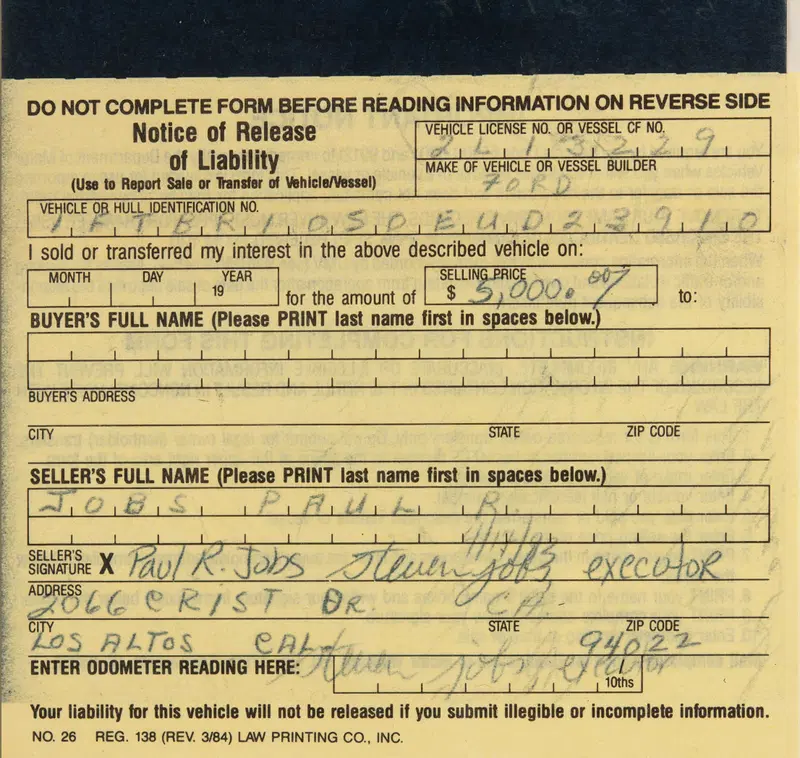 DO NOT COMPLETE FORM BEFORE READING INFORMATION ON REVERSE SIDE
Notice of Release
of Liability
(Use to Report Sale or Transfer of Vehicle/Vessel)
VEHICLE LICENSE NO. OR VESSEL CF NO.
2L13229
MAKE OF VEHICLE OR VESSEL BUILDER
FORD
VEHICLE OR HULL IDENTIFICATION NO.
1FTBR10S0EUD23910
I sold or transferred my interest in the above described vehicle on:
MONTH DAY YEAR
19
for the amount of
SELLING PRICE
$ 5,000.00
to:
BUYER'S FULL NAME (Please PRINT last name first in spaces below.)
BUYER'S ADDRESS
CITY STATE ZIP CODE
SELLER'S FULL NAME (Please PRINT last name first in spaces below.)
JOBS PAUL R.
4/14/93
SELLER'S
SIGNATURE X Paul R. Jobs steven jobs executor
ADDRESS
2066 CRIST DR. CA.
CITY STATE ZIP CODE
LOS ALTOS CAL. 94022
steven jobs executor
ENTER ODOMETER READING HERE:
10ths
Your liability for this vehicle will not be released if you submit illegible or incomplete information.
NO. 26 REG. 138 (REV. 3/84) LAW PRINTING CO., INC.